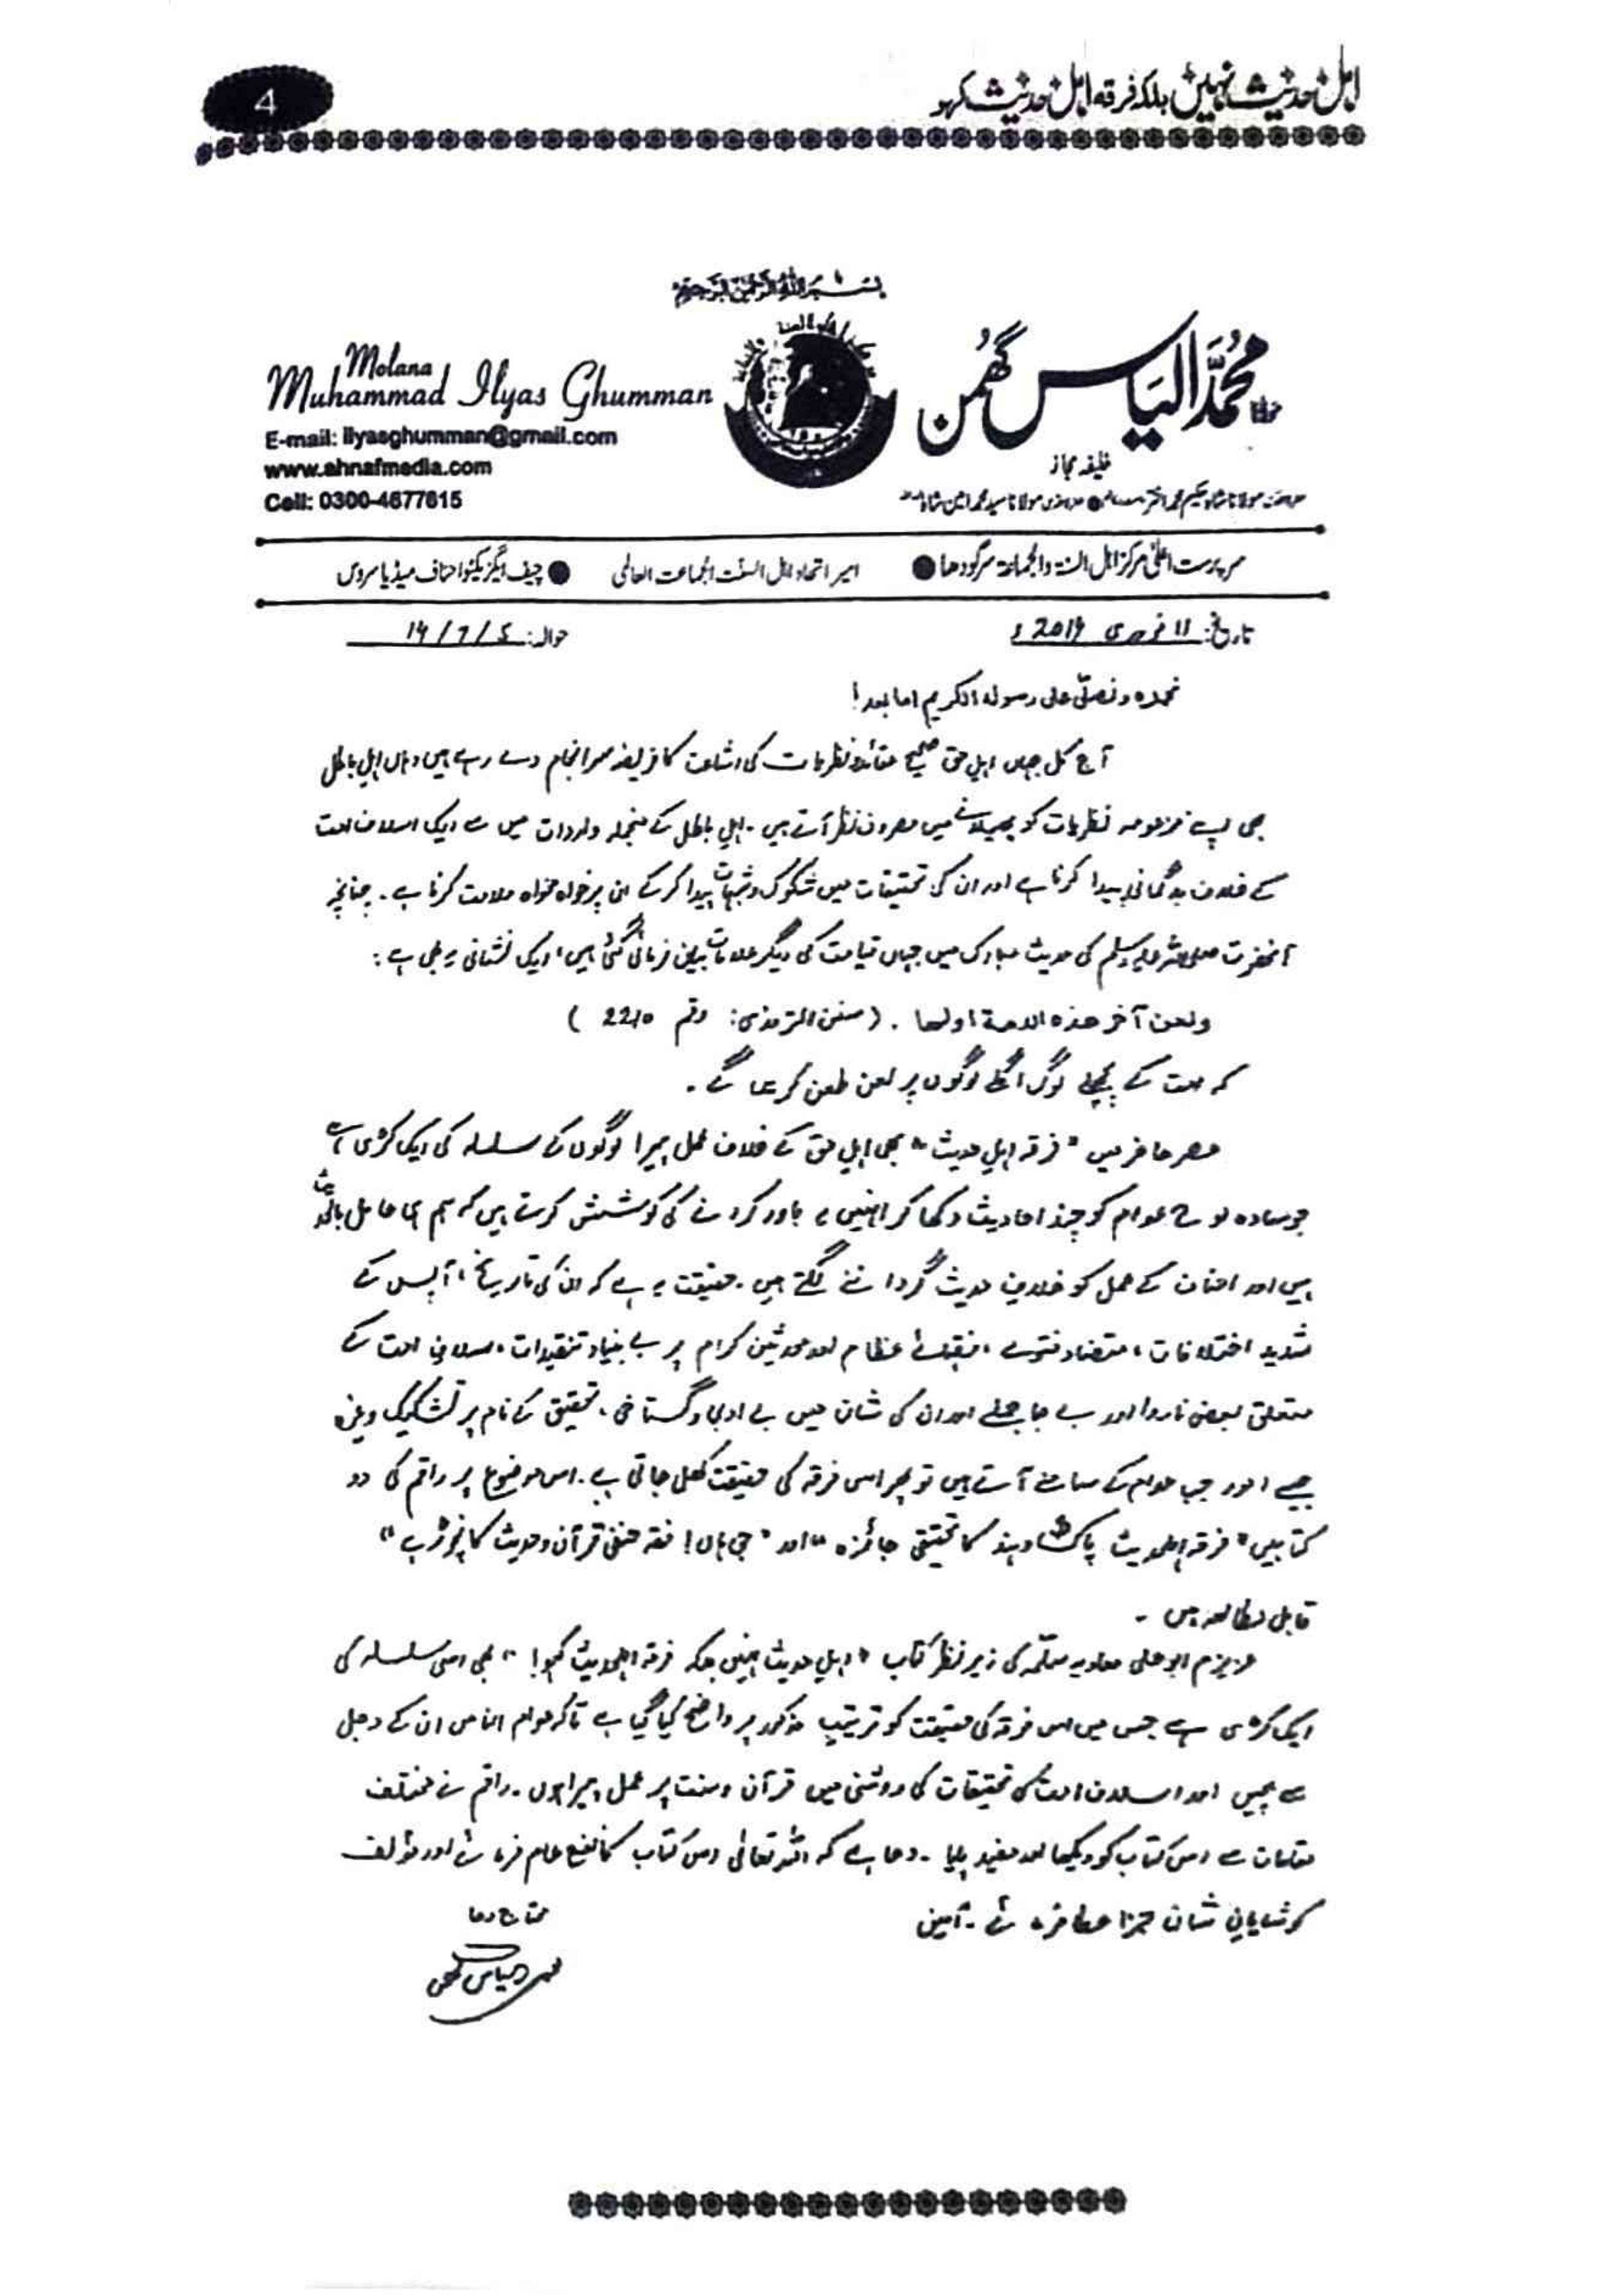 اہل حدیث نہیں بلکہ فرقہ اہل حدیث کہو
4
بسم اللہ الرحمن الرحیم
Molana
Muhammad Ilyas Ghumman
E-mail: ilyasghumman@gmail.com
www.ahnafmedia.com
Cell: 0300-4677615
مولانا محمد الیاس گھمن
خلیفہ مجاز
مولانا شاہ حکیم محمد اختر ● مولانا سید محمد امین شاہ
سرپرست اعلیٰ مرکز اہل السنۃ والجماعۃ سرگودھا ● امیر اتحاد اہل السنت الجماعت العالمی ● چیف ایگزیکٹو احناف میڈیا سروس
تاریخ: 11 فروری 2014ء
حوالہ: 14/7/5
نحمدہ ونصلی علی رسولہ الکریم اما بعد!
آج کل جہاں اہل حق صحیح عقائد و نظریات کی اشاعت کا فریضہ سر انجام دے رہے ہیں وہاں اہل باطل
بھی اپنے مزعومہ نظریات کو پھیلانے میں مصروف نظر آتے ہیں۔ اہل باطل کے منجملہ واردات میں سے ایک اسلاف امت
کے خلاف بدگمانی پیدا کرنا ہے اور ان کی تحقیقات میں شکوک وشبہات پیدا کرکے ان پر خواہ مخواہ ملامت کرنا ہے۔ چنانچہ
آنحضرت صلی اللہ علیہ وسلم کی حدیث مبارک میں جہاں قیامت کی دیگر علامات بیان فرمائی گئی ہیں، ایک نشانی یہ بھی ہے:
ولعن آخر هذه الامة اولها . (سنن الترمذی: رقم 2210)
کہ امت کے پچھلے لوگ اگلے لوگوں پر لعن طعن کریں گے۔
عصر حاضر میں "فرقہ اہل حدیث" بھی اہل حق کے خلاف عمل پیرا لوگوں کے سلسلہ کی ایک کڑی ہے
جو سادہ لوح عوام کو چند احادیث دکھا کر انہیں یہ باور کرنے کی کوشش کرتے ہیں کہ ہم ہی عامل بالحدیث
ہیں اور احناف کے عمل کو خلافِ حدیث گرداننے لگتے ہیں۔ حقیقت یہ ہے کہ ان کی تاریخ، آپس کے
شدید اختلافات، متضاد فتوے، فقہائے عظام اور محدثین کرام پر بے بنیاد تنقیدات، اسلافِ امت کے
متعلق بعض ناروا اور بے جا جملے اور ان کی شان میں بے ادبی و گستاخی، تحقیق کے نام پر تشکیک وغیرہ
جیسے امور جب عوام کے سامنے آتے ہیں تو پھر اس فرقہ کی حقیقت کھل جاتی ہے۔ اس موضوع پر راقم کی دو
کتابیں "فرقہ اہلحدیث پاک وہند کا تحقیقی جائزہ" اور "جی ہاں! فقہ حنفی قرآن وحدیث کا نچوڑ ہے"
قابل مطالعہ ہیں۔
عزیزم ابو علی معاویہ سلّمہ کی زیر نظر کتاب "اہل حدیث نہیں بلکہ فرقہ اہلحدیث کہو!" بھی اسی سلسلہ کی
ایک کڑی ہے جس میں اس فرقہ کی حقیقت کو ترتیبِ مذکور پر واضح کیا گیا ہے تاکہ عوام الناس ان کے دجل
سے بچیں اور اسلاف امت کی تحقیقات کی روشنی میں قرآن وسنت پر عمل پیرا ہوں۔ راقم نے مختلف
مقامات سے اس کتاب کو دیکھا اور مفید پایا۔ دعا ہے کہ اللہ تعالیٰ اس کتاب کا نفع عام فرمائے اور مؤلف
کو شایانِ شان جزا عطا فرمائے۔ آمین
محتاج دعا
محمد الیاس گھمن